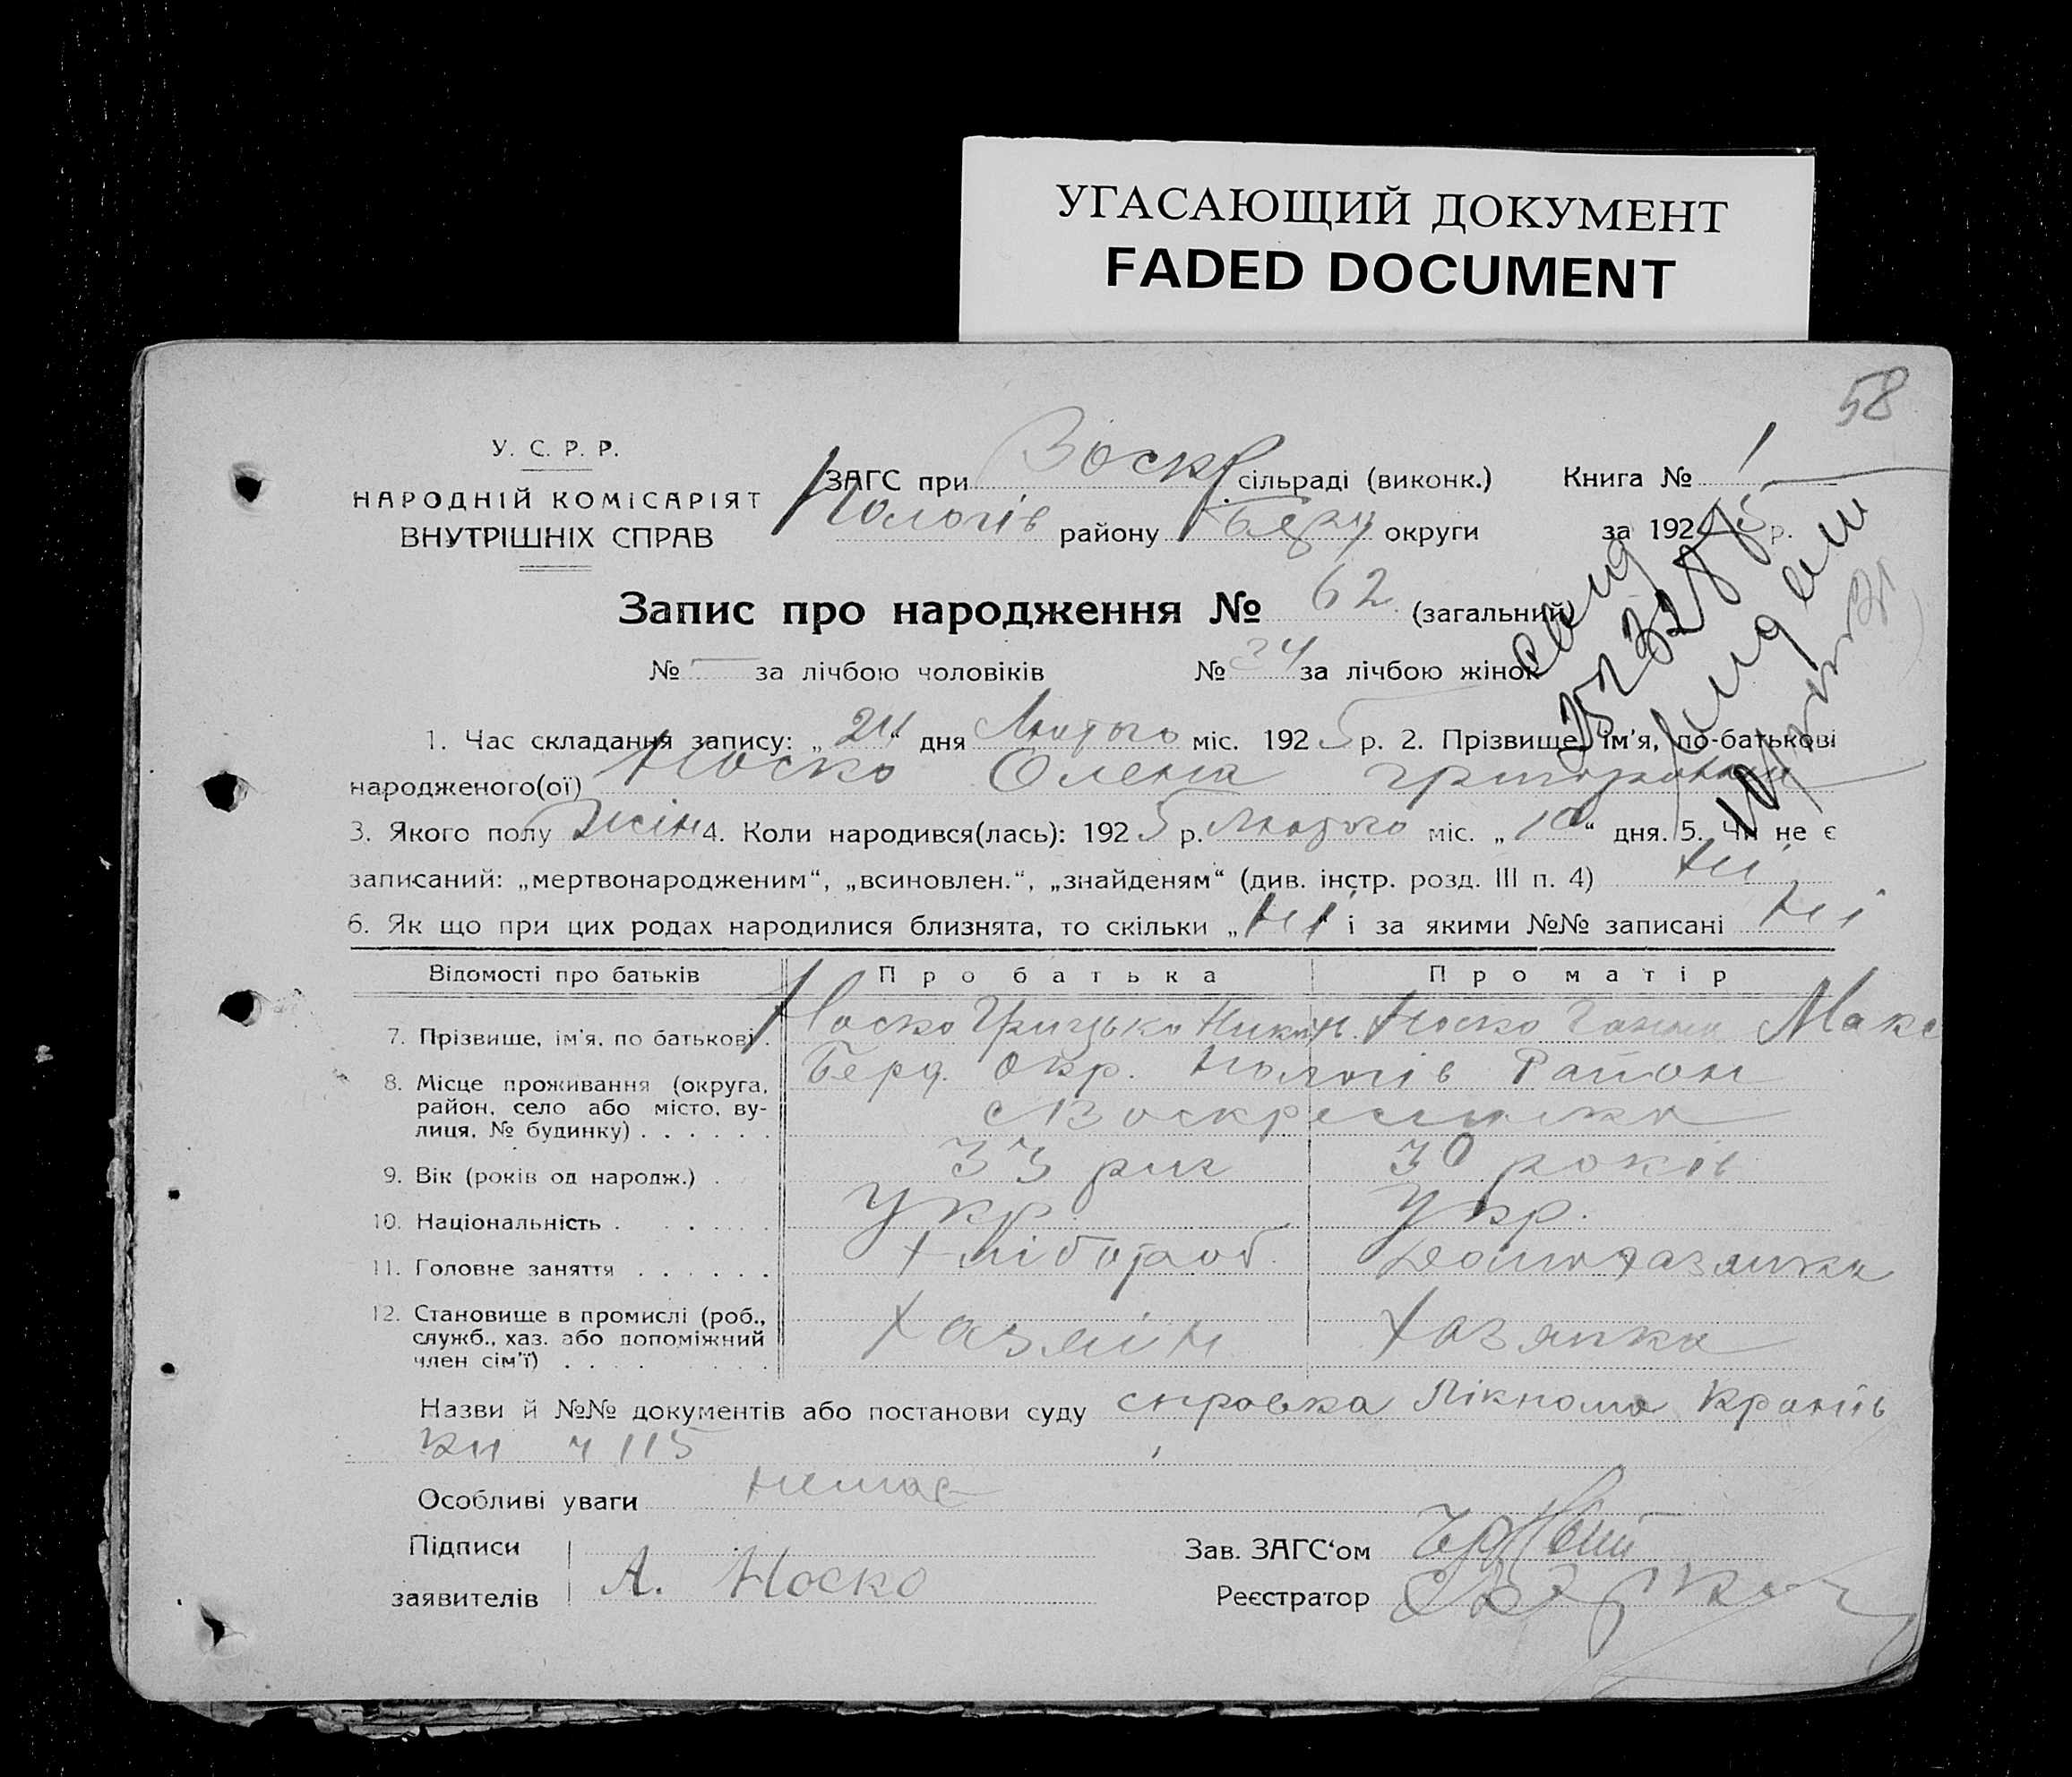 УГАСАЮЩИЙ ДОКУМЕНТ
FADED DOCUMENT
58
У. С. Р. Р.
НАРОДНІЙ КОМІСАРІЯТ
ВНУТРІШНІХ СПРАВ
ЗАГС при Воскр сільраді (виконк.) Книга № 1
Пологів району Берд округи за 1925 р.
Запис про народження № 62 (загальний)
№ — за лічбою чоловіків № 34 за лічбою жінок
1. Час складання запису: „24“ дня Лютого міс. 1925 р. 2. Прізвище, ім'я, по-батькові
народженого(ої) Носко Олена Григоровна
3. Якого полу Жін 4. Коли народився(лась): 1925 р. Лютого міс. „10“ дня. 5. Чи не є
записаний: „мертвонародженим“, „всиновлен.“, „знайденям“ (див. інстр. розд. III п. 4) Ні
6. Як що при цих родах народилися близнята, то скільки „Ні“ і за якими №№ записані Ні
Відомості про батьків Про батька Про матір
7. Прізвище, ім'я, по батькові . Носко Грицько Никон. Носко Ганна Макс
8. Місце проживання (округа, Берд. Окр. Пологів Район
район, село або місто, ву- с Воскресенка
лиця, № будинку) . . . . . .
9. Вік (років од народж.) . 33 рик 30 років
10. Національність . . . . . Укр. Укр.
11. Головне заняття . . . . . . Хлібороб. Домохазяйка
12. Становище в промислі (роб., Хазяїн Хазяйка
служб., хаз. або допоміжний
член сім'ї) . . . . . . . . .
Назви й №№ документів або постанови суду справка Лікпома
ч 115
Особливі уваги немає
Підписи Зав. ЗАГС'ом
заявителів А. Носко Реєстратор